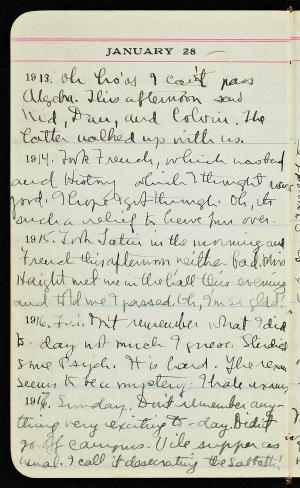 JANUARY 28
1913. Oh I can't pass
Algebra. This afternoon saw
Kid, Dan, and Colvin. The
latter walked up with us.
1914. Took French, which was bad
and History which I thought was
good. I hope I got through. Oh, its
such a relief to have fun over.
1915. Took Latin in the morning and
French this afternoon neither bad. Miss
Haight met me in the hall this evening
and told me I passed. Oh, I'm so glad!
1916. Fri. Don't remember what I did
to-day not much I guess. Studied
some Psych. It is hard. The exam
seems to be a mystery. I hate exams
Sunday. Don't remember any-
thing very exciting to-day. Didn't
go off campus. Vile supper as
usual. I call it desecrating the Sabbath!